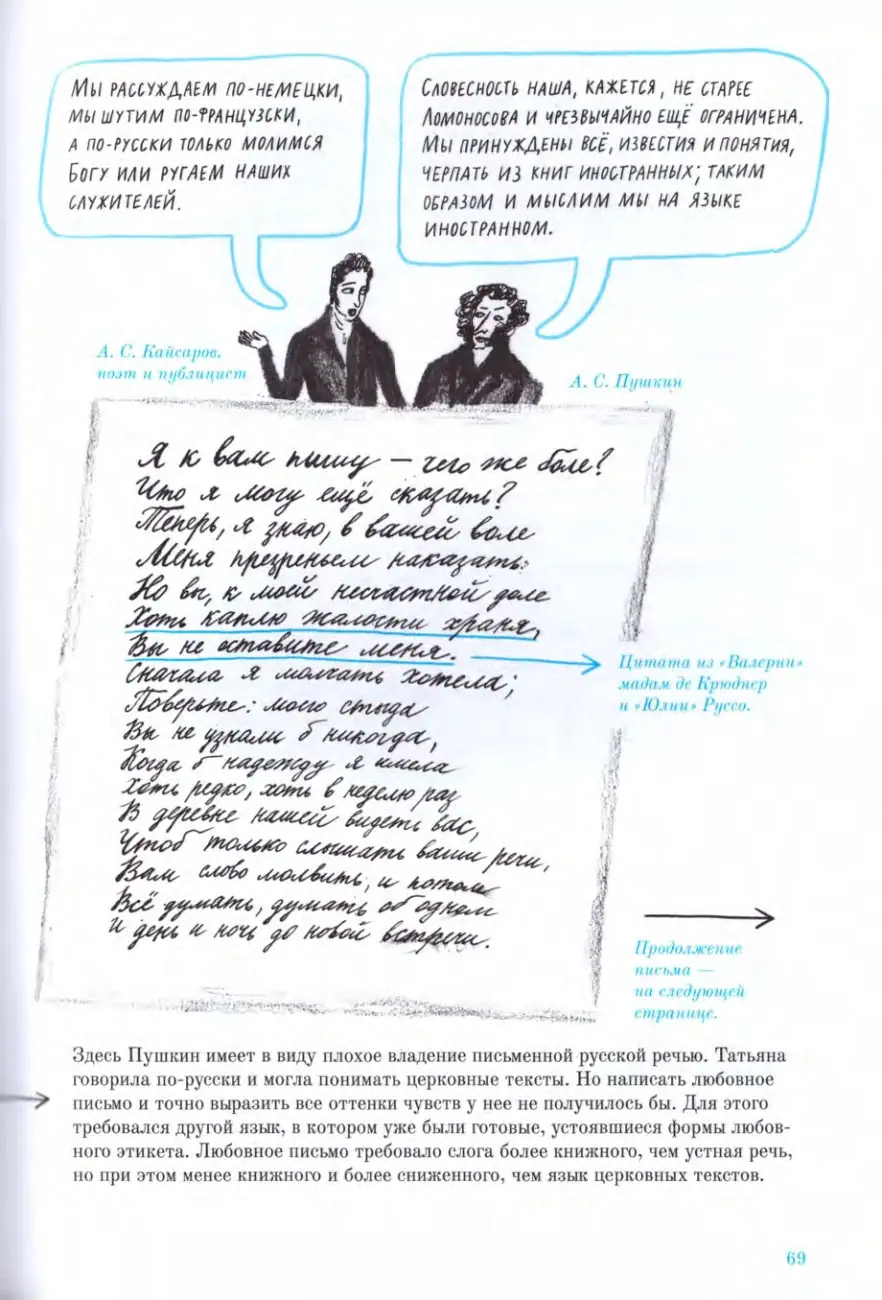 Мы рассуждаем по-немецки,
мы шутим по-французски,
а по-русски только молимся
Богу или ругаем наших
служителей.
Словесность наша, кажется, не старее
Ломоносова и чрезвычайно ещё ограничена.
Мы принуждены всё, известия и понятия,
черпать из книг иностранных; таким
образом и мыслим мы на языке
иностранном.
А. С. Кайсаров,
поэт и публицист
А. С. Пушкин
Я к вам пишу – чего же боле?
Что я могу ещё сказать?
Теперь, я знаю, в вашей воле
Меня презреньем наказать.
Но вы, к моей несчастной доле
Хоть каплю жалости храня,
Вы не оставите меня.
Сначала я молчать хотела;
Поверьте: моего стыда
Вы не узнали б никогда,
Когда б надежду я имела
Хоть редко, хоть в неделю раз
В деревне нашей видеть вас,
Чтоб только слышать ваши речи,
Вам слово молвить, и потом
Всё думать, думать об одном
И день и ночь до новой встречи.
Цитата из «Валерии»
мадам де Крюднер
и «Юлии» Руссо.
Продолжение
письма —
на следующей
странице.
Здесь Пушкин имеет в виду плохое владение письменной русской речью. Татьяна
говорила по-русски и могла понимать церковные тексты. Но написать любовное
письмо и точно выразить все оттенки чувств у нее не получилось бы. Для этого
требовался другой язык, в котором уже были готовые, устоявшиеся формы любов-
ного этикета. Любовное письмо требовало слога более книжного, чем устная речь,
но при этом менее книжного и более сниженного, чем язык церковных текстов.
69